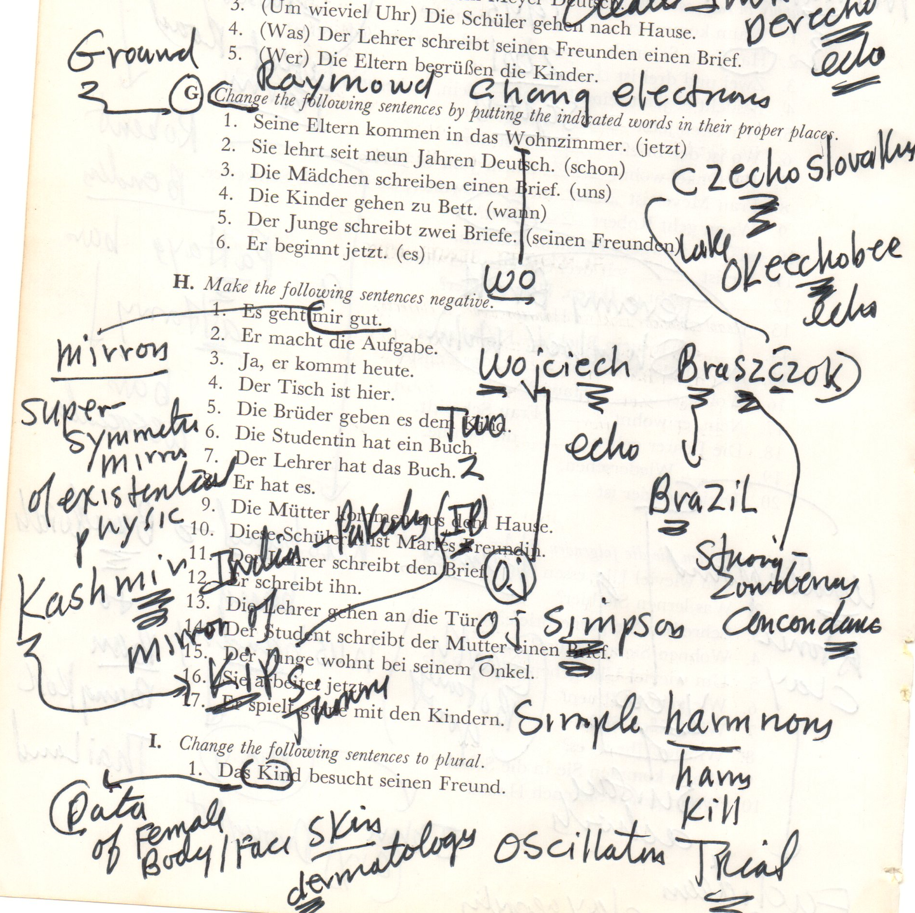 3. (Um wieviel Uhr) Die Schüler gehen nach Hause.
4. (Was) Der Lehrer schreibt seinen Freunden einen Brief.
5. (Wer) Die Eltern begrüßen die Kinder.
Derecho
echo
Ground
Raymond Chang electrons
G. Change the following sentences by putting the indicated words in their proper places.
1. Seine Eltern kommen in das Wohnzimmer. (jetzt)
2. Sie lehrt seit neun Jahren Deutsch. (schon)
3. Die Mädchen schreiben einen Brief. (uns)
4. Die Kinder gehen zu Bett. (wann)
5. Der Junge schreibt zwei Briefe. (seinen Freunden)
6. Er beginnt jetzt. (es)
Czechoslovakia
Lake
Okeechobee
echo
wo
H. Make the following sentences negative.
1. Es geht mir gut.
2. Er macht die Aufgabe.
3. Ja, er kommt heute.
4. Der Tisch ist hier.
5. Die Brüder geben es dem Kind.
6. Die Studentin hat ein Buch.
7. Der Lehrer hat das Buch.
8. Er hat es.
9. Die Mütter kommen aus dem Hause.
10. Diese Schülerin ist Maries Freundin.
11. Der Lehrer schreibt den Brief.
12. Er schreibt ihn.
13. Die Lehrer gehen an die Tür.
14. Der Student schreibt der Mutter einen Brief.
15. Der Junge wohnt bei seinem Onkel.
16. Sie arbeitet jetzt.
17. Er spielt gerne mit den Kindern.
mirrors
super
symmetri
mirror
of existential
physic
Wojciech Braszczok
Two
2
echo
Brazil
Kashmir
mirror of
Oj
Oj Simpson
Simple harmnons
harm
Kill
Trial
I. Change the following sentences to plural.
1. Das Kind besucht seinen Freund.
Data
of Female
Body/Face
Skin
dermatology
Oscillators